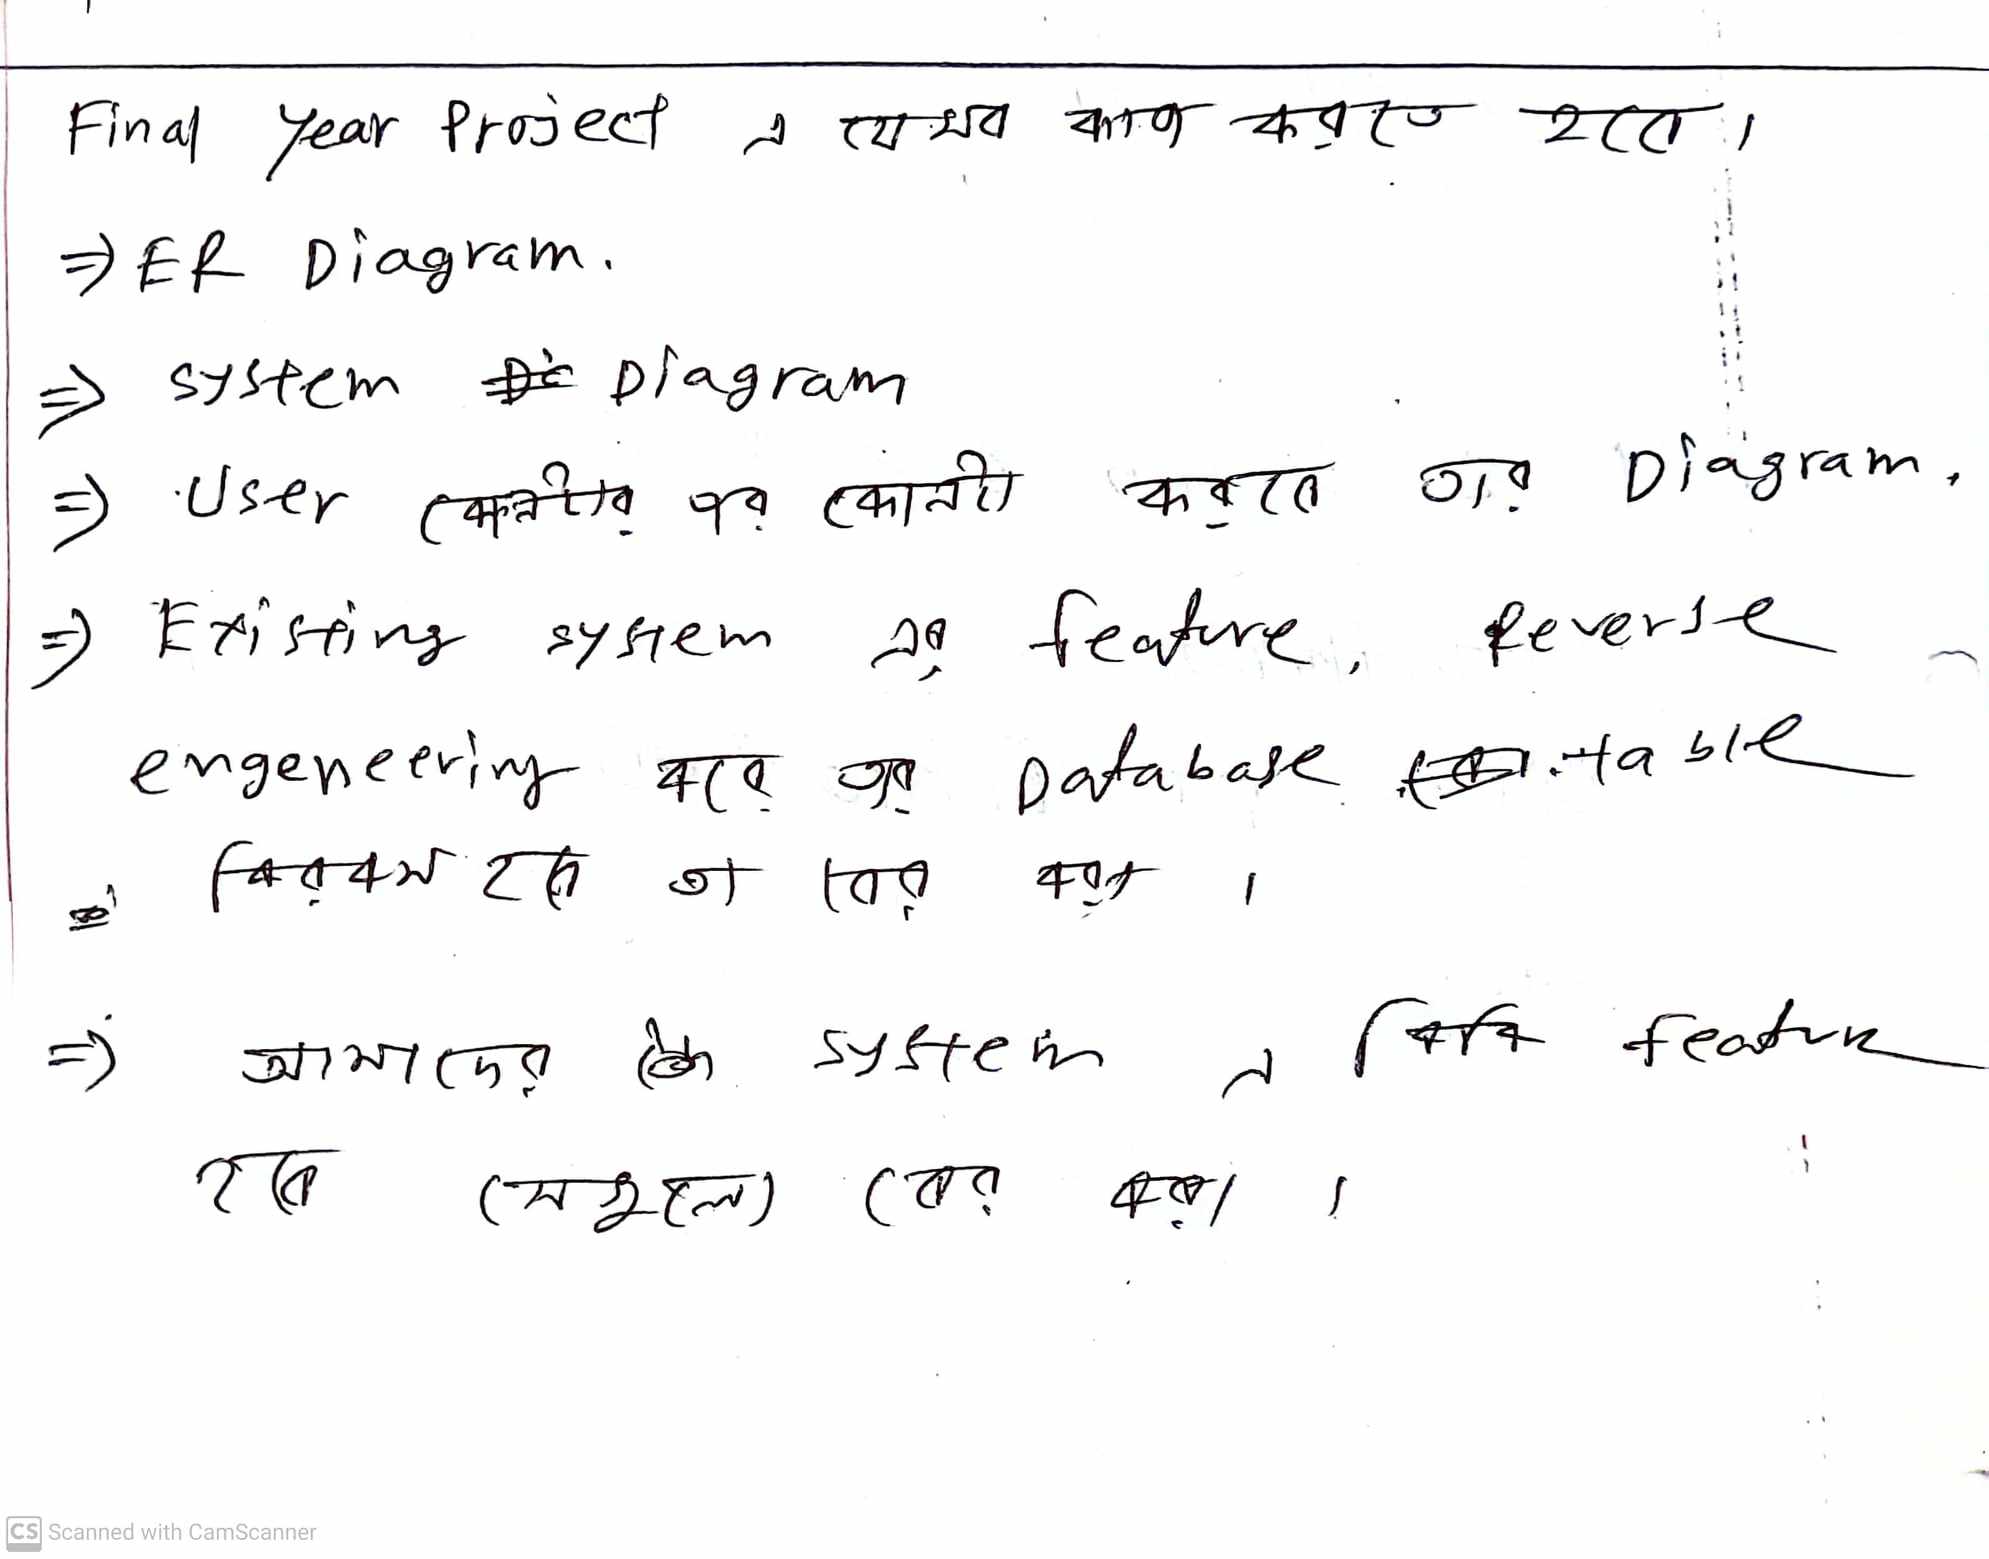 Final Year Project এ যে সব কাজ করতে হবে।
⇒ ER Diagram.
⇒ System Diagram
⇒ User কোনটার পর কোনটা করবে তার Diagram.
⇒ Existing system এর feature, Reverse
engeneering করে তার Database table
কিরকম হবে তা বের করা ।
⇒ আমাদের system এ কিকি feature
হবে সেগুলো বের করা ।
CS Scanned with CamScanner